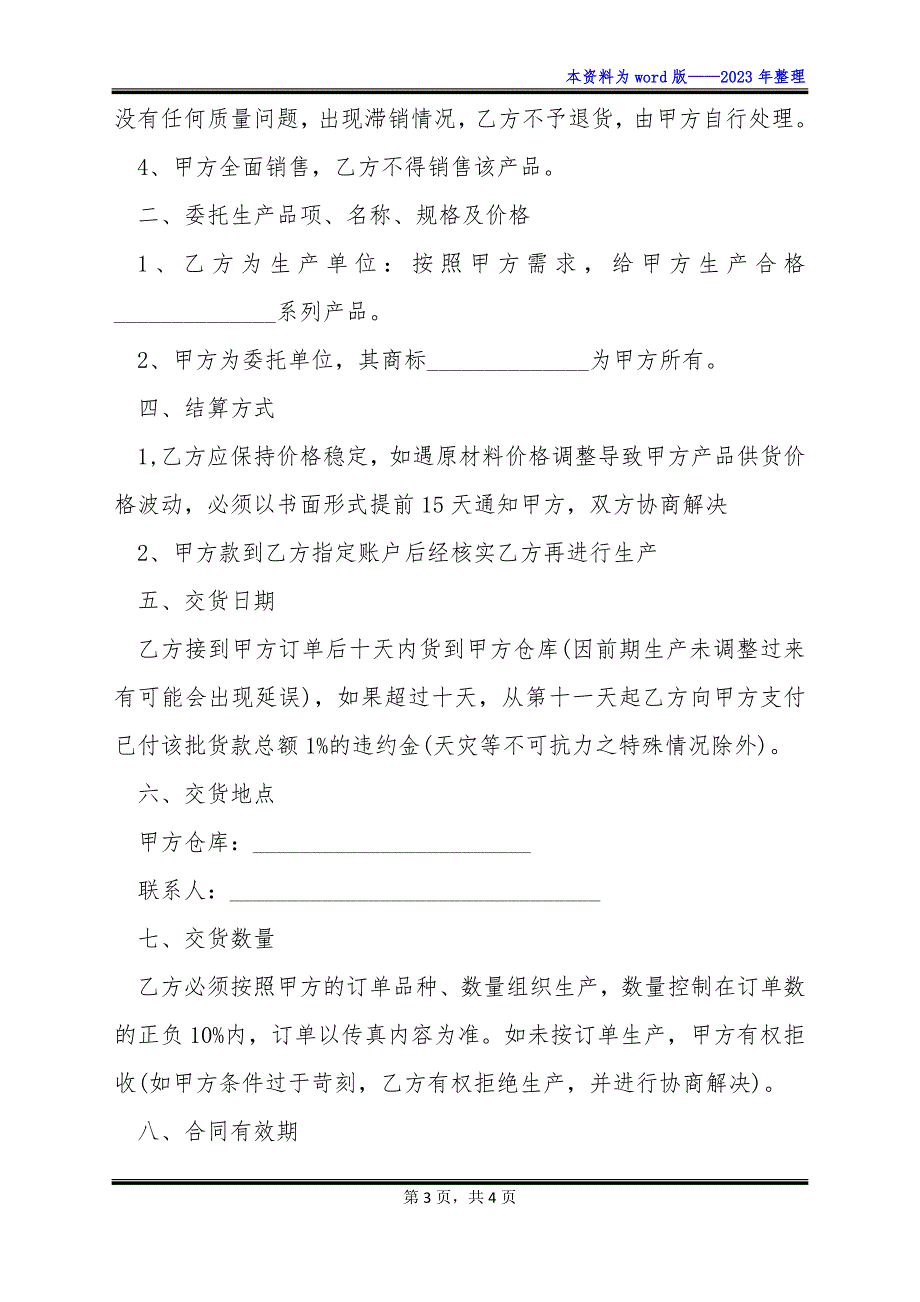 本资料为 word 版——2023 年整理
没有任何质量问题，出现滞销情况，乙方不予退货，由甲方自行处理。
4、甲方全面销售，乙方不得销售该产品。
二、委托生产品项、名称、规格及价格
1、乙方为生产单位：按照甲方需求，给甲方生产合格
______________系列产品。
2、甲方为委托单位，其商标______________为甲方所有。
四、结算方式
1,乙方应保持价格稳定，如遇原材料价格调整导致甲方产品供货价
格波动，必须以书面形式提前 15 天通知甲方，双方协商解决
2、甲方款到乙方指定账户后经核实乙方再进行生产
五、交货日期
乙方接到甲方订单后十天内货到甲方仓库(因前期生产未调整过来
有可能会出现延误)，如果超过十天，从第十一天起乙方向甲方支付
已付该批货款总额 1%的违约金(天灾等不可抗力之特殊情况除外)。
六、交货地点
甲方仓库：________________________
联系人：________________________________
七、交货数量
乙方必须按照甲方的订单品种、数量组织生产，数量控制在订单数
的正负 10%内，订单以传真内容为准。如未按订单生产，甲方有权拒
收(如甲方条件过于苛刻，乙方有权拒绝生产，并进行协商解决)。
八、合同有效期
第 3 页，共 4 页